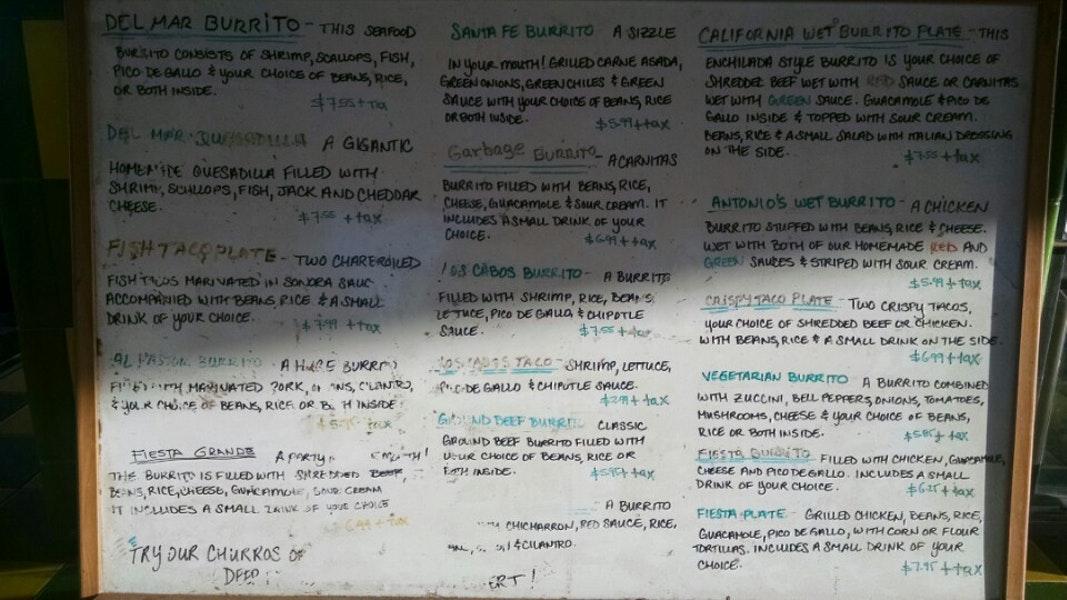 DEL MAR BURRITO - THIS SEAFOOD
BURRITO CONSISTS OF SHRIMP, SCALLOPS, FISH,
PICO DE GALLO & YOUR CHOICE OF BEANS, RICE,
OR BOTH INSIDE.
$7.55 + tax
DEL MAR QUESADILLA A GIGANTIC
HOMEMADE QUESADILLA FILLED WITH
SHRIMP, SCALLOPS, FISH, JACK AND CHEDDAR
CHEESE.
$7.55 + tax
FISH TACO PLATE - TWO CHARBROILED
FISH TACOS MARIVATED IN SONORA SAUC
ACCOMPANIED WITH BEANS, RICE & A SMALL
DRINK OF YOUR CHOICE.
$7.99 + tax
AL PASTOR BURRITO A HUGE BURRITO
WITH MARIVATED PORK, CILANTRO,
& YOUR CHOICE OF BEANS, RICE OR INSIDE
tax
FIESTA GRANDE A PARTY
THE BURRITO IS FILLED WITH SHREDDED BEEF,
BEANS, RICE, CHEESE, GUACAMOLE, SOUR CREAM
IT INCLUDES A SMALL DRINK OF YOUR CHOICE
$6.99 + tax
TRY OUR CHURROS
SANTA FE BURRITO A SIZZLE
IN YOUR MOUTH! GRILLED CARNE ASADA,
GREEN ONIONS, GREEN CHILES & GREEN
SAUCE WITH YOUR CHOICE OF BEANS, RICE
OR BOTH INSIDE.
$5.99 + tax
Garbage BURRITO - A CARNITAS
BURRITO FILLED WITH BEANS, RICE,
CHEESE, GUACAMOLE & SOUR CREAM. IT
INCLUDES A SMALL DRINK OF YOUR
CHOICE.
$6.99 + tax
LOS CABOS BURRITO - A BURRITO
FILLED WITH SHRIMP, RICE, BEANS,
LETTUCE, PICO DE GALLO, & CHIPOTLE
SAUCE.
$7.55 + tax
LOS CABOS TACO - SHRIMP, LETTUCE,
PICO DE GALLO & CHIPOTLE SAUCE.
$2.99 + tax
GROUND BEEF BURRITO CLASSIC
GROUND BEEF BURRITO FILLED WITH
YOUR CHOICE OF BEANS, RICE OR
BOTH INSIDE.
$5.95 + tax
A BURRITO
CHICHARRON, RED SAUCE, RICE,
& CILANTRO.
CALIFORNIA WET BURRITO PLATE - THIS
ENCHILADA STYLE BURRITO IS YOUR CHOICE OF
SHREDDED BEEF WET WITH RED SAUCE OR CARNITAS
WET WITH GREEN SAUCE. GUACAMOLE & PICO DE
GALLO INSIDE & TOPPED WITH SOUR CREAM.
BEANS, RICE & A SMALL SALAD WITH ITALIAN DRESSING
ON THE SIDE.
$7.55 + tax
ANTONIO'S WET BURRITO - A CHICKEN
BURRITO STUFFED WITH BEANS, RICE & CHEESE.
WET WITH BOTH OF OUR HOMEMADE RED AND
GREEN SAUCES & STRIPED WITH SOUR CREAM.
$5.99 + tax
CRISPY TACO PLATE - TWO CRISPY TACOS,
YOUR CHOICE OF SHREDDED BEEF OR CHICKEN.
WITH BEANS, RICE & A SMALL DRINK ON THE SIDE.
$6.99 + tax
VEGETARIAN BURRITO A BURRITO COMBINED
WITH ZUCCINI, BELL PEPPERS, ONIONS, TOMATOES,
MUSHROOMS, CHEESE & YOUR CHOICE OF BEANS,
RICE OR BOTH INSIDE.
$5.85 + tax
FIESTA BURRITO FILLED WITH CHICKEN, GUACAMOLE,
CHEESE AND PICO DE GALLO. INCLUDES A SMALL
DRINK OF YOUR CHOICE.
$6.25 + tax
FIESTA PLATE - GRILLED CHICKEN, BEANS, RICE,
GUACAMOLE, PICO DE GALLO, WITH CORN OR FLOUR
TORTILLAS. INCLUDES A SMALL DRINK OF YOUR
CHOICE.
$7.95 + tax